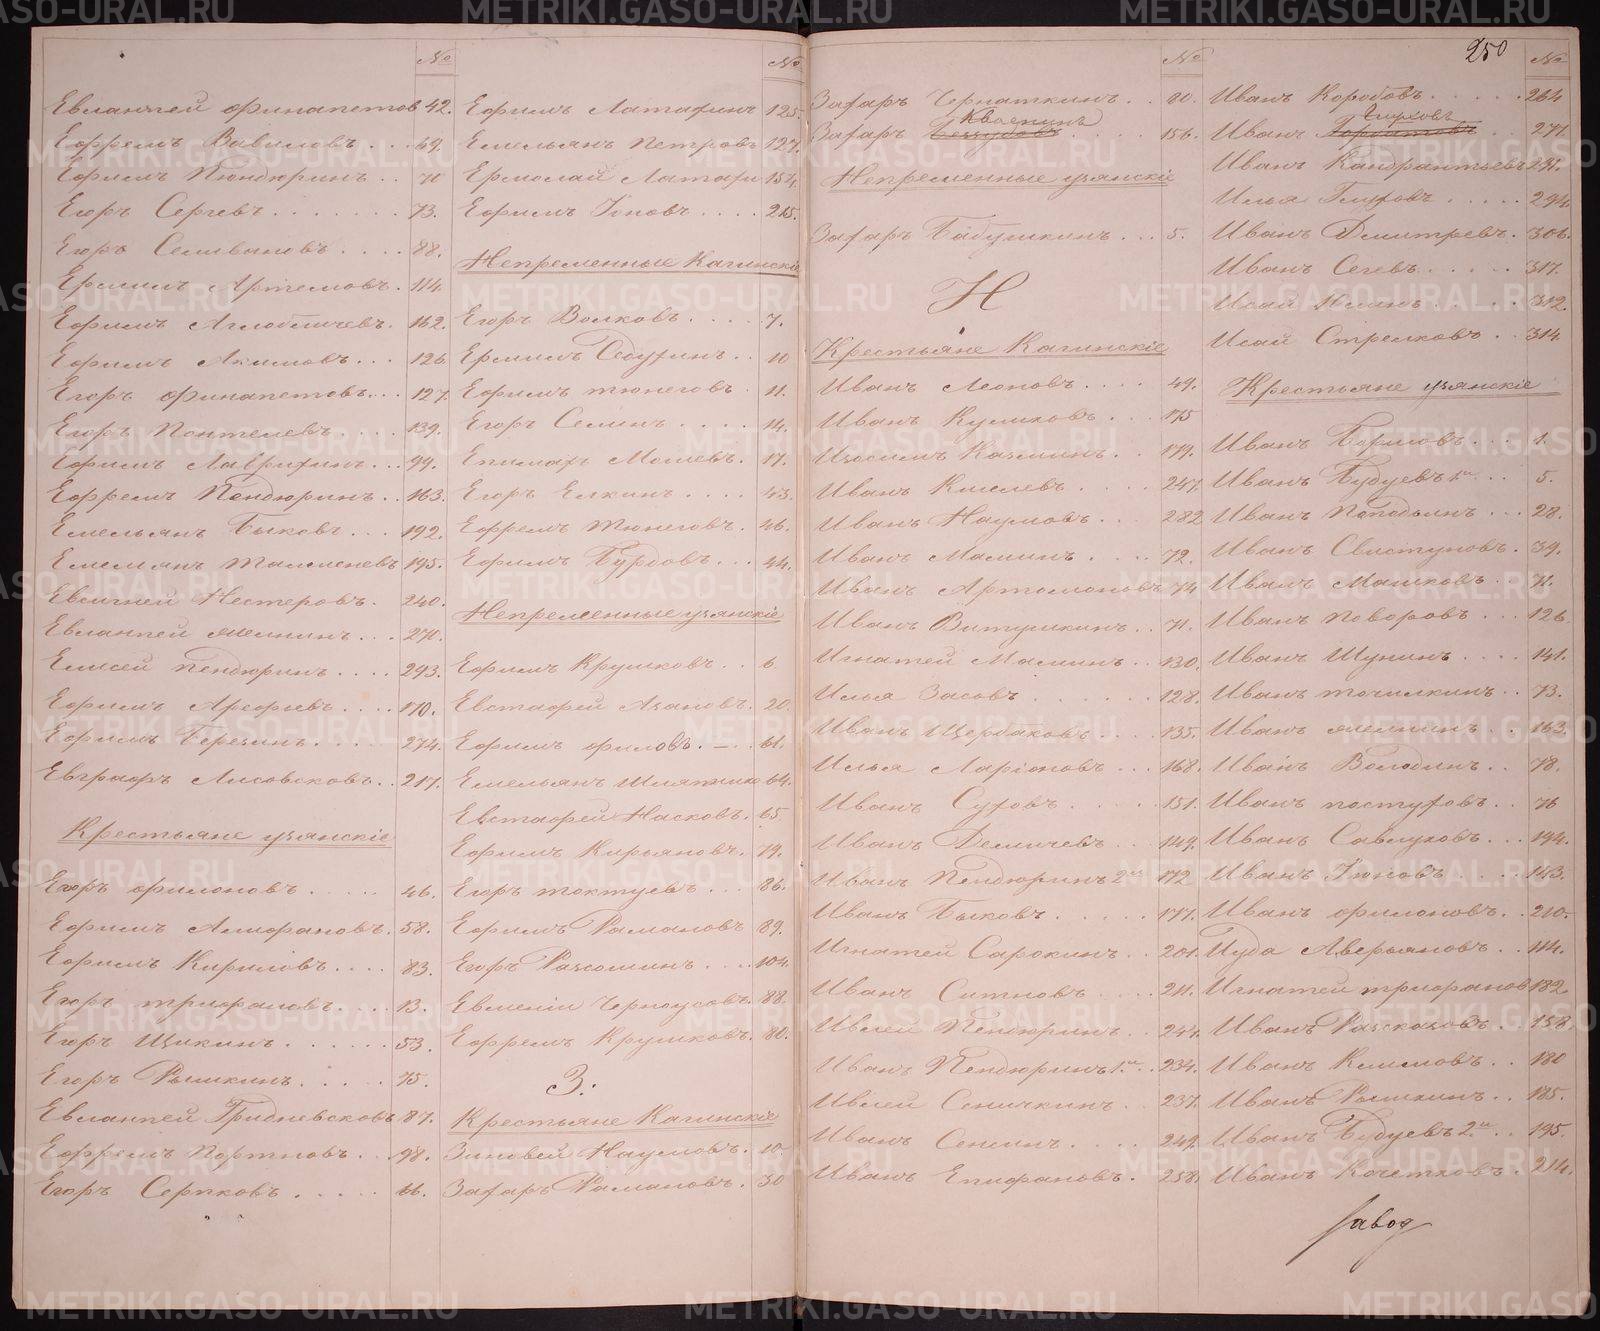 №
Евлампей Финапетов 42.
Ефремъ Вавиловъ 69.
Ефимъ Пюндюринъ 70
Егоръ Сергевъ 73.
Егоръ Селивановъ 88.
Ермилъ Артемовъ 114.
Ефимъ 162.
Ефимъ Акимовъ 126
Егоръ Финапетовъ 127.
Егоръ Понтелевъ 139.
Ефимъ 99.
Ефремъ Пендюринъ 163.
Емельянъ Быковъ 192.
Емелянъ 195.
Евигней Нестеровъ 240.
Евлампей 270.
Елисей Пендюринъ 293.
Ефимъ Арефьевъ 170.
Ефимъ Березинъ 274.
Евграфъ Лисовсковъ 217.
Крестьяне узянскіе
Егоръ Филоновъ 46.
Ефимъ 58.
Ефимъ Кириловъ 83.
Егоръ Трифоновъ 13.
Егоръ Щукинъ 53.
Егоръ Рышкинъ 75.
Евлампей Гридневсковъ 87.
Ефремъ Портновъ 98.
Егоръ Серпковъ 66.
№
Ефимъ 125.
Емельянъ Петровъ 127.
Ермолай 154.
Ефимъ Іоновъ 215.
Непременные Кагинскіе
Егоръ Волковъ 7.
Ермилъ 10
Ефимъ Тюнеговъ 11.
Егоръ Семинъ 14.
Епимахъ Мошевъ 17.
Егоръ Елкинъ 43.
Ефремъ Тюнеговъ 46.
Ефимъ Бурдовъ 44.
Непременные узянскіе
Ефимъ Крушковъ 6
Евстафей Азановъ 20.
Ефимъ Филовъ 61.
Емельянъ 64.
Евстафей Насковъ 65
Ефимъ Кирьяновъ 79.
Егоръ Токтуевъ 86.
Ефимъ Рамановъ 89.
Егоръ Разсошинъ 104.
Евменій Черноусовъ 88.
Ефремъ Крушковъ 80.
З.
Крестьяне Кагинскіе
Зиновей Наумовъ 10
Захаръ Рамановъ 30
№
Захаръ Черпаткинъ 80.
Кваснинъ
Захаръ 156.
Непременные узянскіе
Захаръ Бабушкинъ 5.
И
Крестьяне Кагинскіе
Иванъ Леоновъ 49.
Иванъ Куликовъ 175
Изосимъ Казминъ 179.
Иванъ Киселевъ 247.
Иванъ Наумовъ 282
Иванъ Маминъ 72.
Иванъ Артомоновъ 74
Иванъ Витушкинъ 71.
Игнатей Маминъ 130.
Илья Засовъ 128.
Иванъ Щербаковъ 135.
Илья Ларіоновъ 168.
Иванъ Суховъ 151.
Иванъ Демичевъ 149.
Иванъ Пендюринъ 2й 172
Иванъ Быковъ 177.
Игнатей Сарокинъ 201.
Иванъ Ситновъ 211.
Ивлей Пендюринъ 244.
Иванъ Пендюринъ 1й 234.
Ивлей Сеничкинъ 237.
Иванъ Сенсинъ 249.
Иванъ Епифановъ 258.
250
№
Иванъ Коробовъ 264
Сихровъ
Иванъ Горбатовъ 271.
Иванъ Кандратьевъ 291.
Илья Глуховъ 294.
Иванъ Дмитревъ 306.
Иванъ Сегевъ 317.
Исай Илинъ 312.
Исай Стрелковъ 314.
Крестьяне узянскіе
Иванъ Борисовъ 1.
Иванъ Будуевъ 1й 5.
Иванъ Поподьинъ 28.
Иванъ Свистуновъ 39.
Иванъ Машковъ 71.
Иванъ Поворовъ 126
Иванъ Шунинъ 141.
Иванъ Точилкинъ 73.
Иванъ 163.
Иванъ Володинъ 78.
Иванъ Постуховъ 76
Иванъ Савлуковъ 194.
Иванъ Іюновъ 143.
Иванъ Филоновъ 210.
Иуда Аверьяновъ 114.
Игнатей Трифанов 132.
Иванъ Разсказовъ 158
Иванъ Климовъ 180
Иванъ Рышкинъ 185.
Иванъ Будуевъ 2й 195.
Иванъ Кочетковъ 214.
завод
METRIKI.GASO-URAL.RU